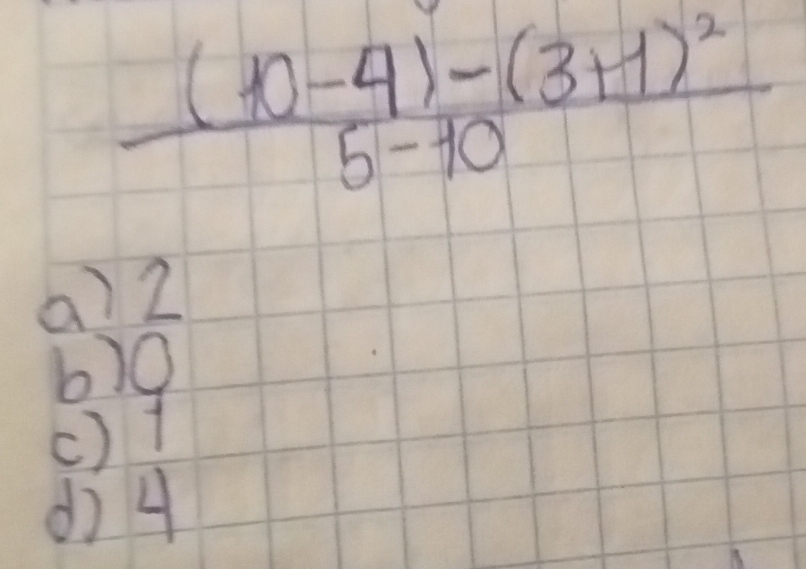 (10-4)-(3+1)²
5-10
a) 2
b) 0
c) 1
d) 4